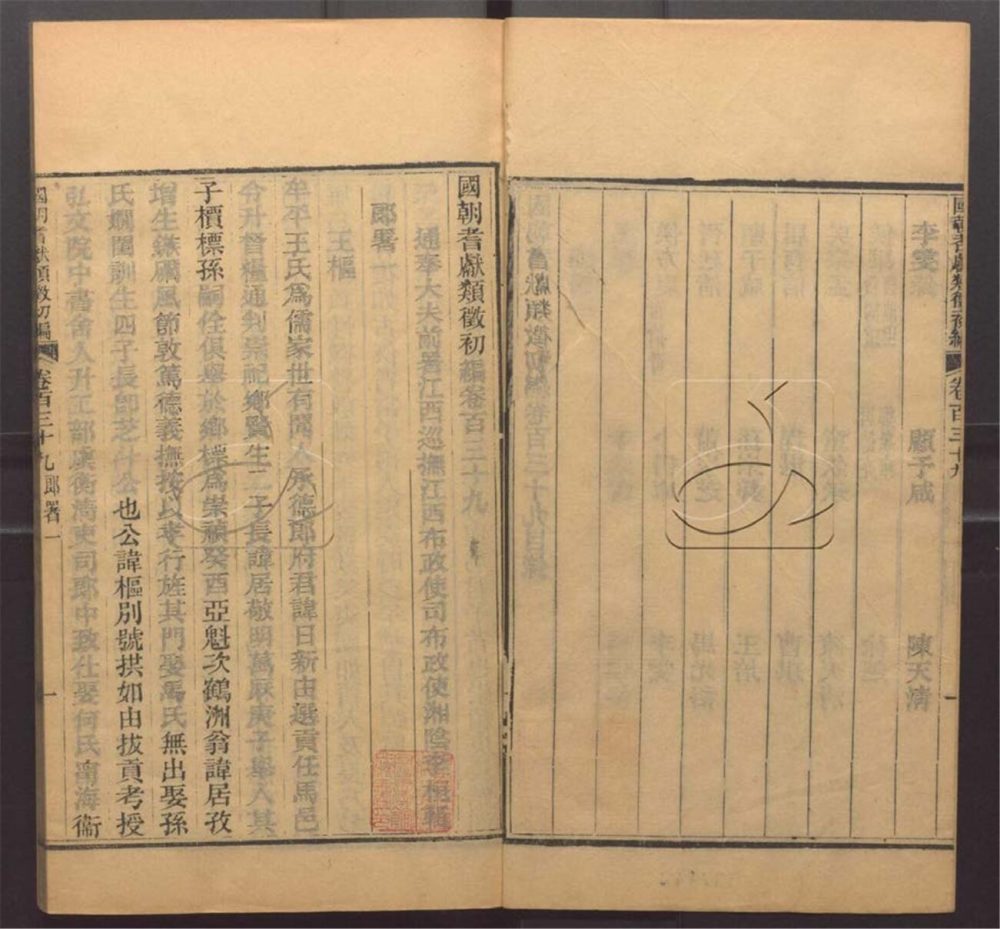 國朝耆獻類徵初編　卷百三十九
李雯　顧予咸　陳天清
國朝耆獻類徵初編卷百三十九
通奉大夫前署江西巡撫江西布政使司布政使湘陰李桓輯
郎署一
王樞
牟平王氏爲儒家世有聞人承德郎府君諱日新由選貢任馬邑
令升晉楊通判崇祀鄉賢生二子長諱居敬明萬厯庚子舉人其
子櫝標孫嗣佺俱舉於鄉標爲崇禎癸酉亞魁次鶴洲翁諱居孜
增生鏃礪風節敦篤德義撫按以孝行旌其門娶馮氏無出娶孫
氏嫻閫訓生四子長卽芝什公也公諱樞別號拱如由拔貢考授
弘文院中書舍人升工部虞衡淸吏司郎中致仕娶何氏甯海衞
國朝耆獻類徵初編　卷百三十九　郎署一　一